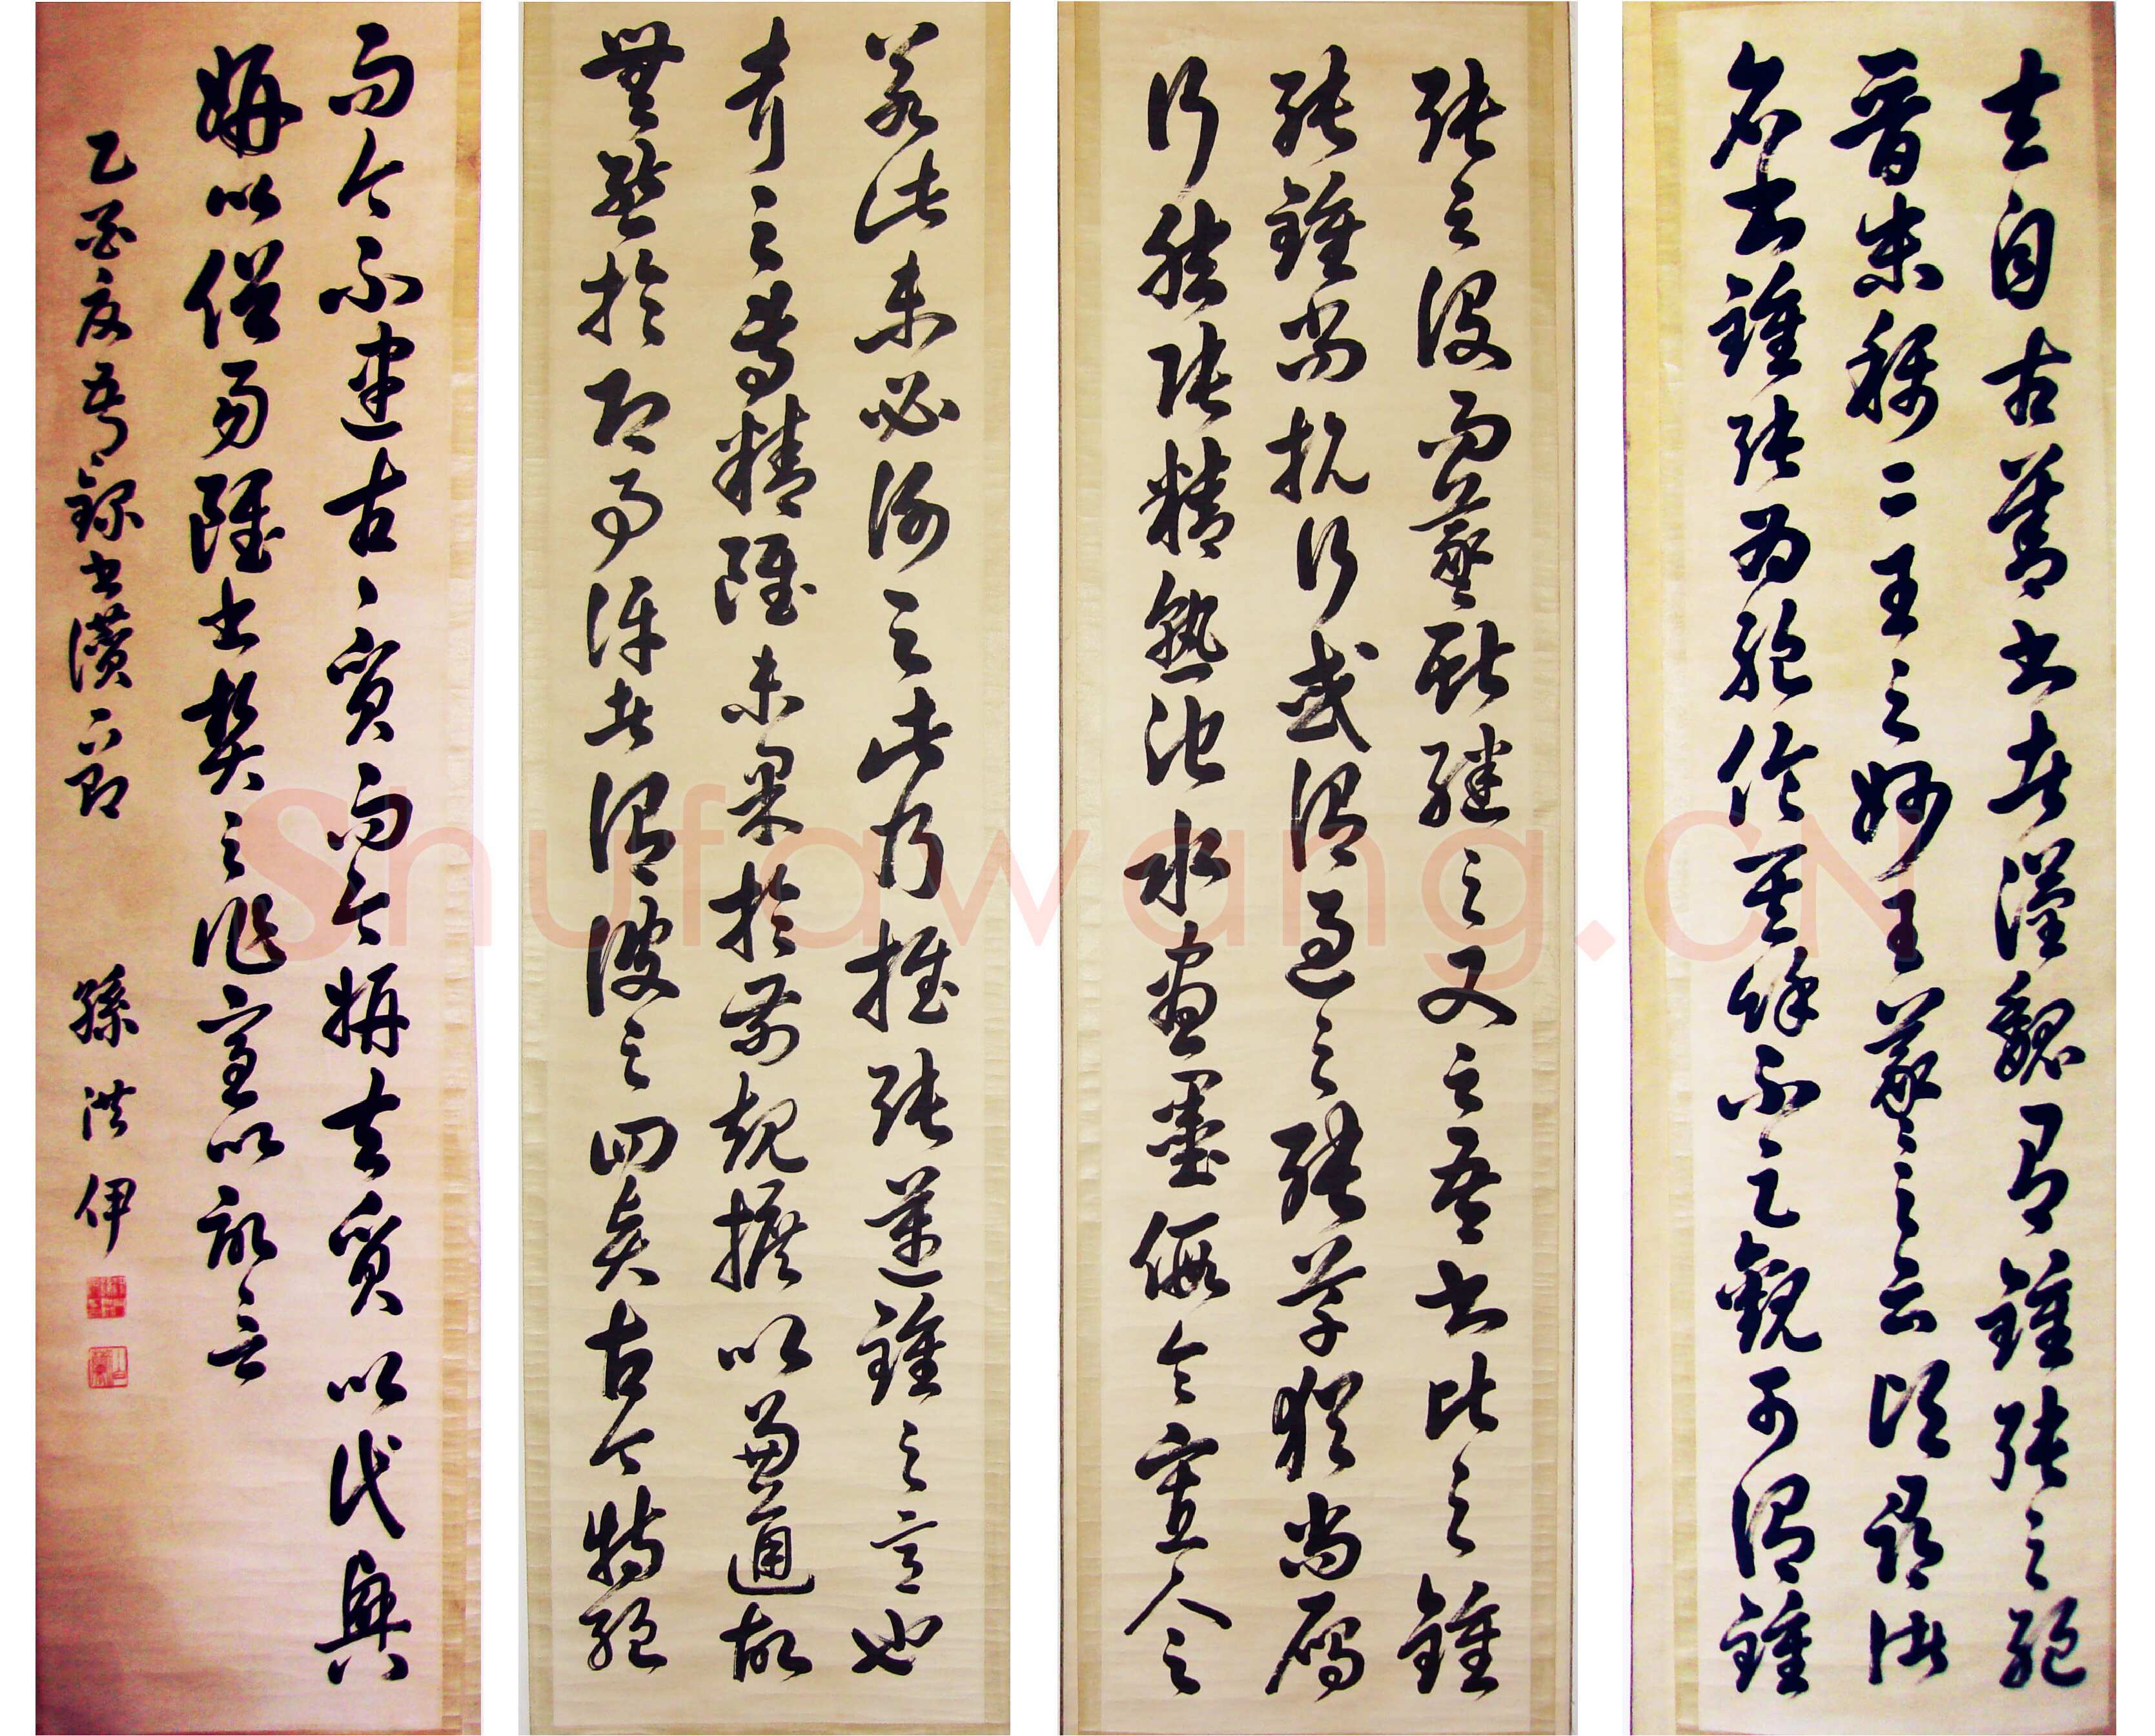 夫自古善書者漢魏有鍾張之絕
晉末稱二王之妙王羲之云頃尋諸
名書鍾張為絕倫其餘不足觀可謂鍾
張云沒而羲獻繼之又云吾書比之鍾
張鍾當抗行或謂過之張草猶當雁
行然張精熟池水盡墨假令寡人之
若此未必謝之此乃推張邁鍾之意也
考之專精雖未果於前規摭以兼通故
無慙於即事評者謂彼之四賢古今特絕
而今不逮古古質而今妍夫質以代興
妍以俗易雖書契之作適以記言
乙酉夏 錄書譜一節 孫洪伊
Shufawang.CN